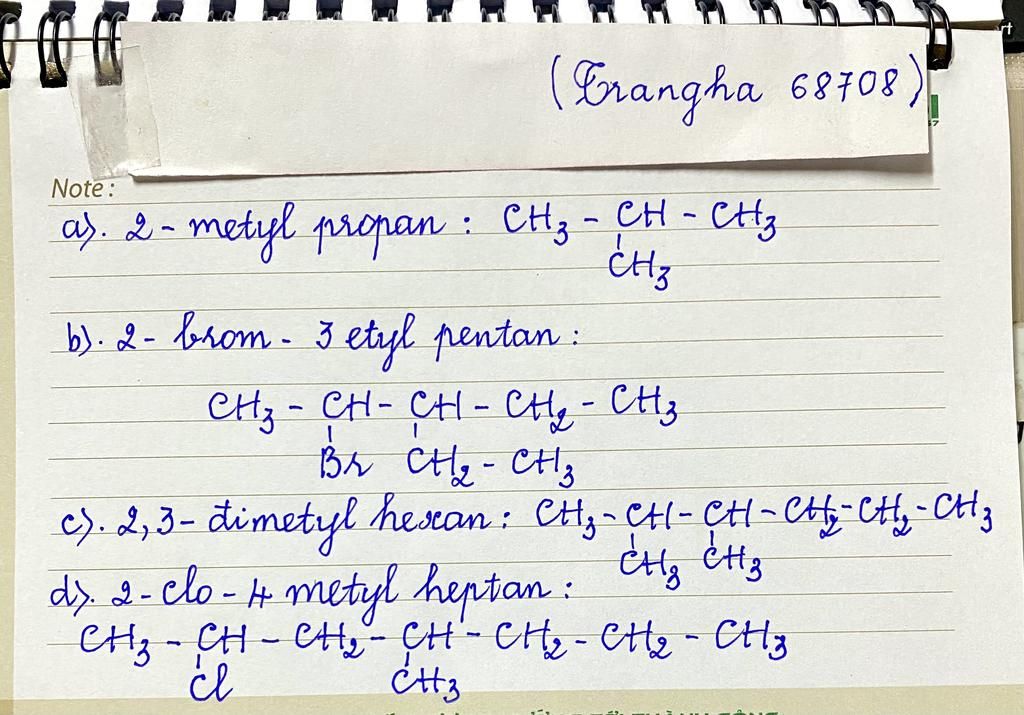 (Trangha 68708)
Note :
a). 2 - metyl propan : CH3 - CH - CH3
CH3
b). 2 - brom - 3 etyl pentan :
CH3 - CH - CH - CH2 - CH3
Br CH2 - CH3
c). 2,3 - đimetyl hexan : CH3 - CH - CH - CH2 - CH2 - CH3
CH3 CH3
d). 2 - clo - 4 metyl heptan :
CH3 - CH - CH2 - CH - CH2 - CH2 - CH3
Cl CH3